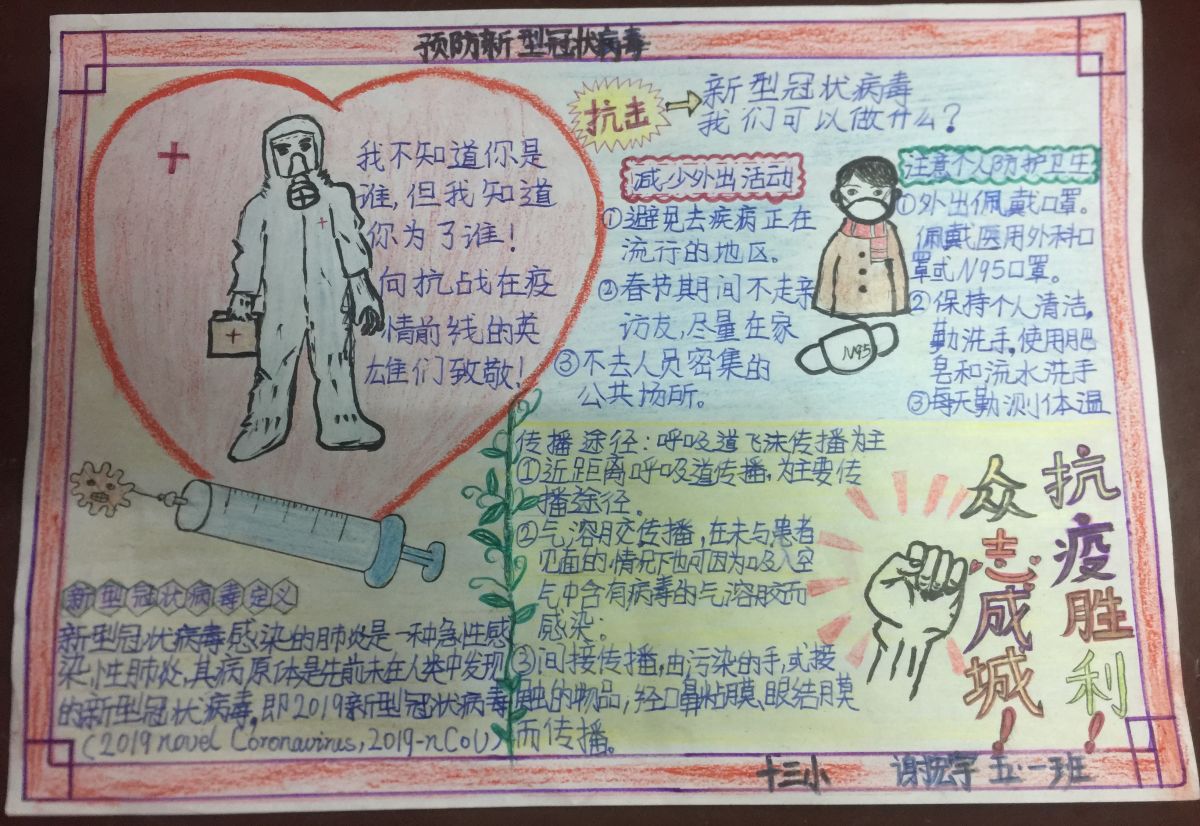 预防新型冠状病毒
我不知道你是
谁,但我知道
你为了谁!
向抗战在疫
情前线的英
雄们致敬!
抗击
新型冠状病毒
我们可以做什么?
减少外出活动
①避免去疾病正在
流行的地区。
②春节期间不走亲
访友,尽量在家
③不去人员密集的
公共场所。
注意个人防护卫生
①外出佩戴口罩。
佩戴医用外科口
罩或N95口罩。
②保持个人清洁,
勤洗手,使用肥
皂和流水洗手
③每天勤测体温
N95
新型冠状病毒定义
新型冠状病毒感染的肺炎是一种急性感
染性肺炎,其病原体是先前未在人类中发现
的新型冠状病毒,即2019新型冠状病毒
(2019 novel Coronavirus, 2019-nCoV)
传播途径:呼吸道飞沫传播为主
①近距离呼吸道传播,为主要传
播途径。
②气溶胶传播,在未与患者
见面的情况下也可因为吸入空
气中含有病毒的气溶胶而
感染;
③间接传播,由污染的手,或接
触的物品,经口鼻粘膜、眼结膜
而传播。
众志成城!
抗疫胜利!
十三小
五·一班